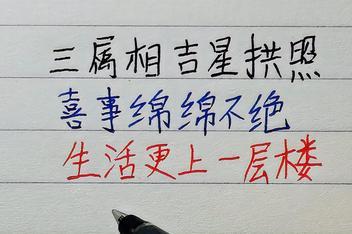 三属相吉星拱照
喜事绵绵不绝
生活更上一层楼